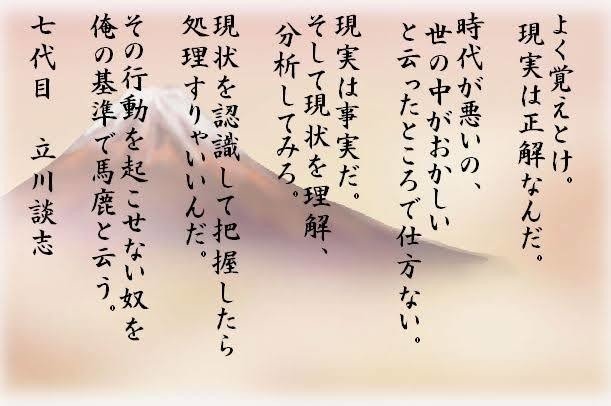 よく覚えとけ。
現実は正解なんだ。
時代が悪いの、
世の中がおかしい
と云ったところで仕方ない。
現実は事実だ。
そして現状を理解、
分析してみろ。
現状を認識して把握したら
処理すりゃいいんだ。
その行動を起こせない奴を
俺の基準で馬鹿と云う。
七代目 立川談志